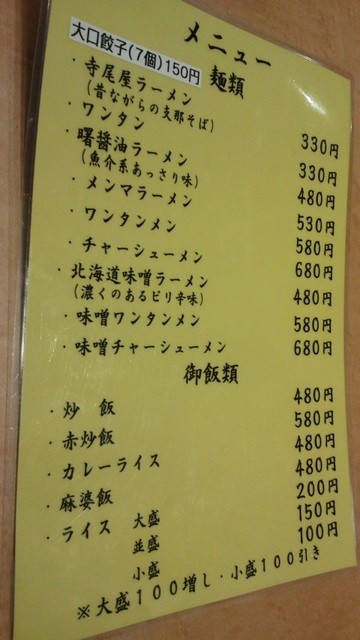 メニュー
大口餃子(7個)150円
麺類
・寺尾屋ラーメン 330円
(昔ながらの支那そば)
・ワンタン 330円
・曙醤油ラーメン 480円
(魚介系あっさり味)
・メンマラーメン 530円
・ワンタンメン 580円
・チャーシューメン 680円
・北海道味噌ラーメン 480円
(濃くのあるピリ辛味)
・味噌ワンタンメン 580円
・味噌チャーシューメン 680円
御飯類
・炒 飯 480円
・赤炒飯 580円
・カレーライス 480円
・麻婆飯 480円
・ライス 大盛 200円
並盛 150円
小盛 100円
※大盛100増し・小盛100引き